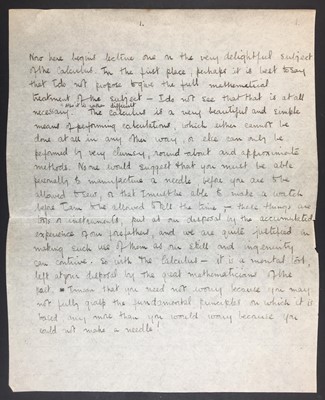 1.
Now here begins lecture one on the very delightful subject
of the Calculus. In the first place, perhaps it is best to say
that I do not propose to give the full mathematical
treatment of the subject – I do not see that that is at all
necessary. The calculus is a very beautiful and simple
means of performing calculations, which either cannot be
done at all in any other way, or else can only be
performed by very clumsy, round-about and approximate
methods. No one would suggest that you must be able
personally to manufacture a needle before you are to be
allowed to sew, or that I must be able to make a watch
before I am to be allowed to tell the time – these things are
or instruments, put at our disposal by the accumulated
experience of our forefathers, and we are quite justified in
making such use of them as our skill and ingenuity
can contrive. So with the Calculus – it is a mental tool
left at your disposal by the great mathematicians of the
past, I mean that you need not worry because you may
not fully grasp the fundamental principles on which it is
based any more than you would worry because you
could not make a needle.